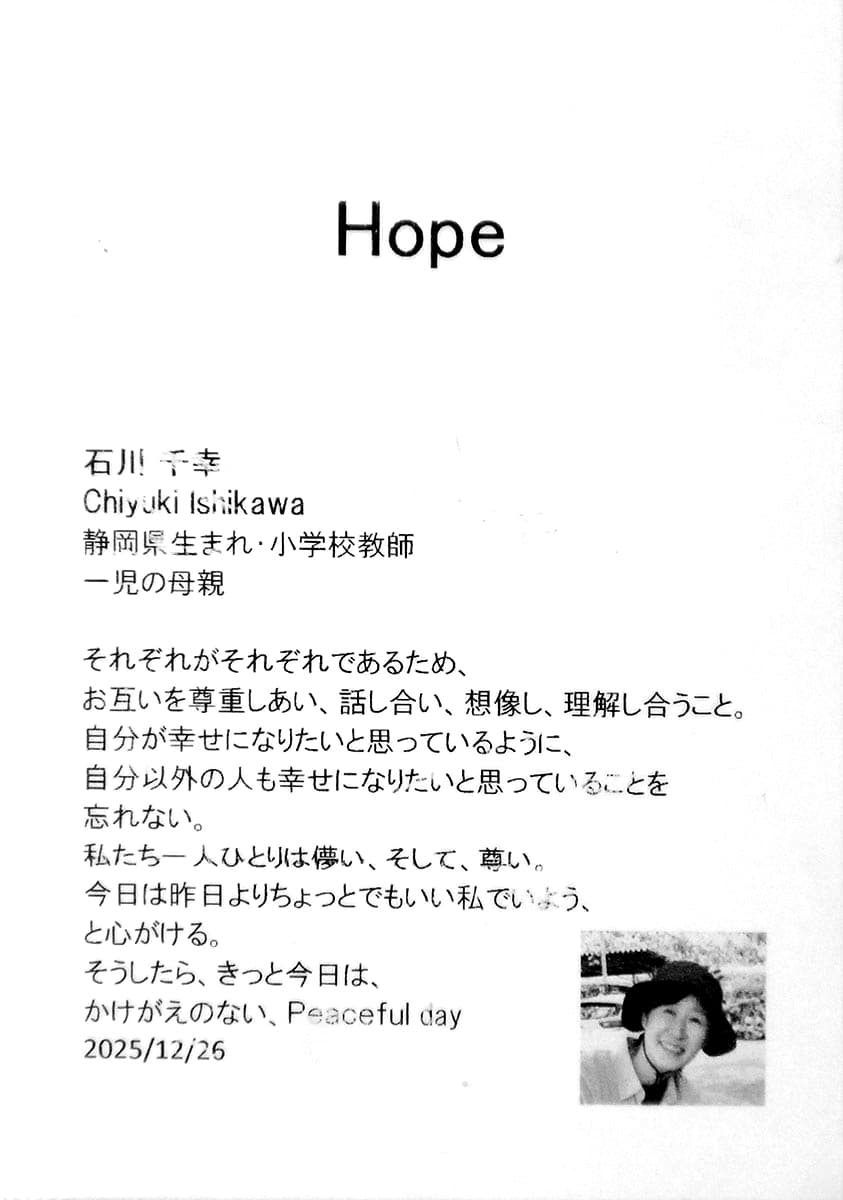 Hope
石川 千幸
Chiyuki Ishikawa
静岡県生まれ・小学校教師
一児の母親
それぞれがそれぞれであるため、
お互いを尊重しあい、話し合い、想像し、理解し合うこと。
自分が幸せになりたいと思っているように、
自分以外の人も幸せになりたいと思っていることを
忘れない。
私たち一人ひとりは儚い、そして、尊い。
今日は昨日よりちょっとでもいい私でいよう、
と心がける。
そうしたら、きっと今日は、
かけがえのない、Peaceful day
2025/12/26